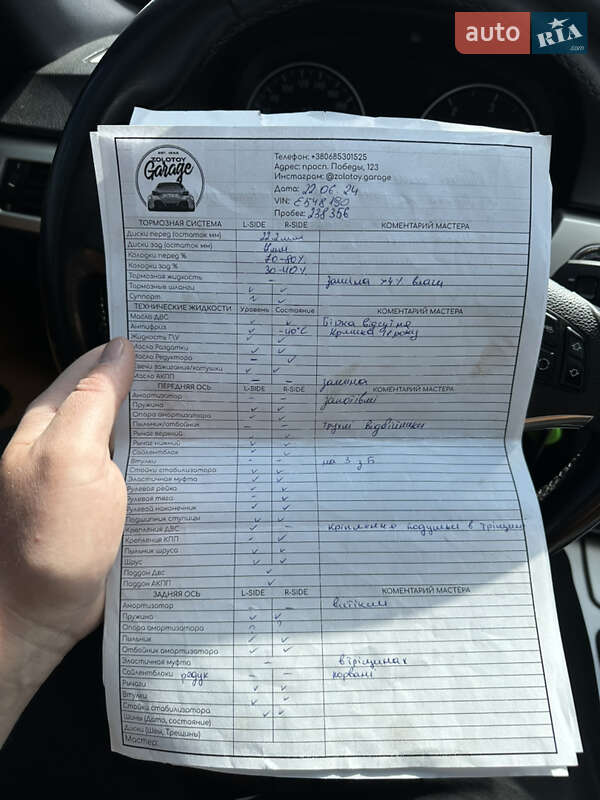 auto RIA.com
EST. 19AR
ZOLOTOY
Garage
Телефон: +380685301525
Адрес: просп. Победы, 123
Инстаграм: @zolotoy.garage
Дата: 22.06.24
VIN: E548180
Пробег: 238356
ТОРМОЗНАЯ СИСТЕМА L-SIDE R-SIDE КОМЕНТАРИЙ МАСТЕРА
Диски перед (остаток мм) 22.2мм
Диски зад (остаток мм)
Колодки перед % 70-80%
Колодки зад % 30-40%
Тормозная жидкость – заміна >4% влаги
Тормозные шланги ✓ ✓
Суппорт ✓
ТЕХНИЧЕСКИЕ ЖИДКОСТИ Уровень Состояние КОМЕНТАРИЙ МАСТЕРА
Масло ДВС ✓ ✓ Бірка відсутня
Антифриз ✓ -40°C
Жидкость ГУ ✓ ✓
Масло Раздатки ✓ ✓
Масло Редуктора – ✓
Свечи зажигания/катушки ✓ ✓
Масло АКПП – – заміна
ПЕРЕДНЯЯ ОСЬ L-SIDE R-SIDE КОМЕНТАРИЙ МАСТЕРА
Амортизатор – – запотівші
Пружина ✓ ✓
Опора амортизатора ✓ ✓
Пыльник/отбойник – – трухлі відбійники
Рычаг верхний ✓ ✓
Рычаг нижний ✓ ✓
Сайлентблок ✓ ✓
Втулки – – на 3 з 5
Стойки стабилизатора ✓ ✓
Эластичная муфта ✓ ✓
Рулевая рейка ✓ ✓
Рулевая тяга ✓ ✓
Рулевой наконечник ✓ ✓
Подшипник ступицы ✓ ✓
Крепления ДВС ✓ – кріплення подушки в тріщинах
Крепления КПП ✓ ✓
Пыльник шруса ✓ ✓
Шрус ✓ ✓
Поддон Двс ✓
Поддон АКПП ✓
ЗАДНЯЯ ОСЬ L-SIDE R-SIDE КОМЕНТАРИЙ МАСТЕРА
Амортизатор – – витікши
Пружина ✓ ✓
Опора амортизатора ? ?
Пыльник ✓ ✓
Отбойник амортизатора ✓ ✓
Эластичная муфта – в тріщинах
Сайлентблоки редук – – порвані
Рычаги ✓ ✓
Втулки ✓ ✓
Стойки стабилизатора ✓ ✓
Шины (Дата, состояние)
Диски (Швы, Трещины)
Мастер: